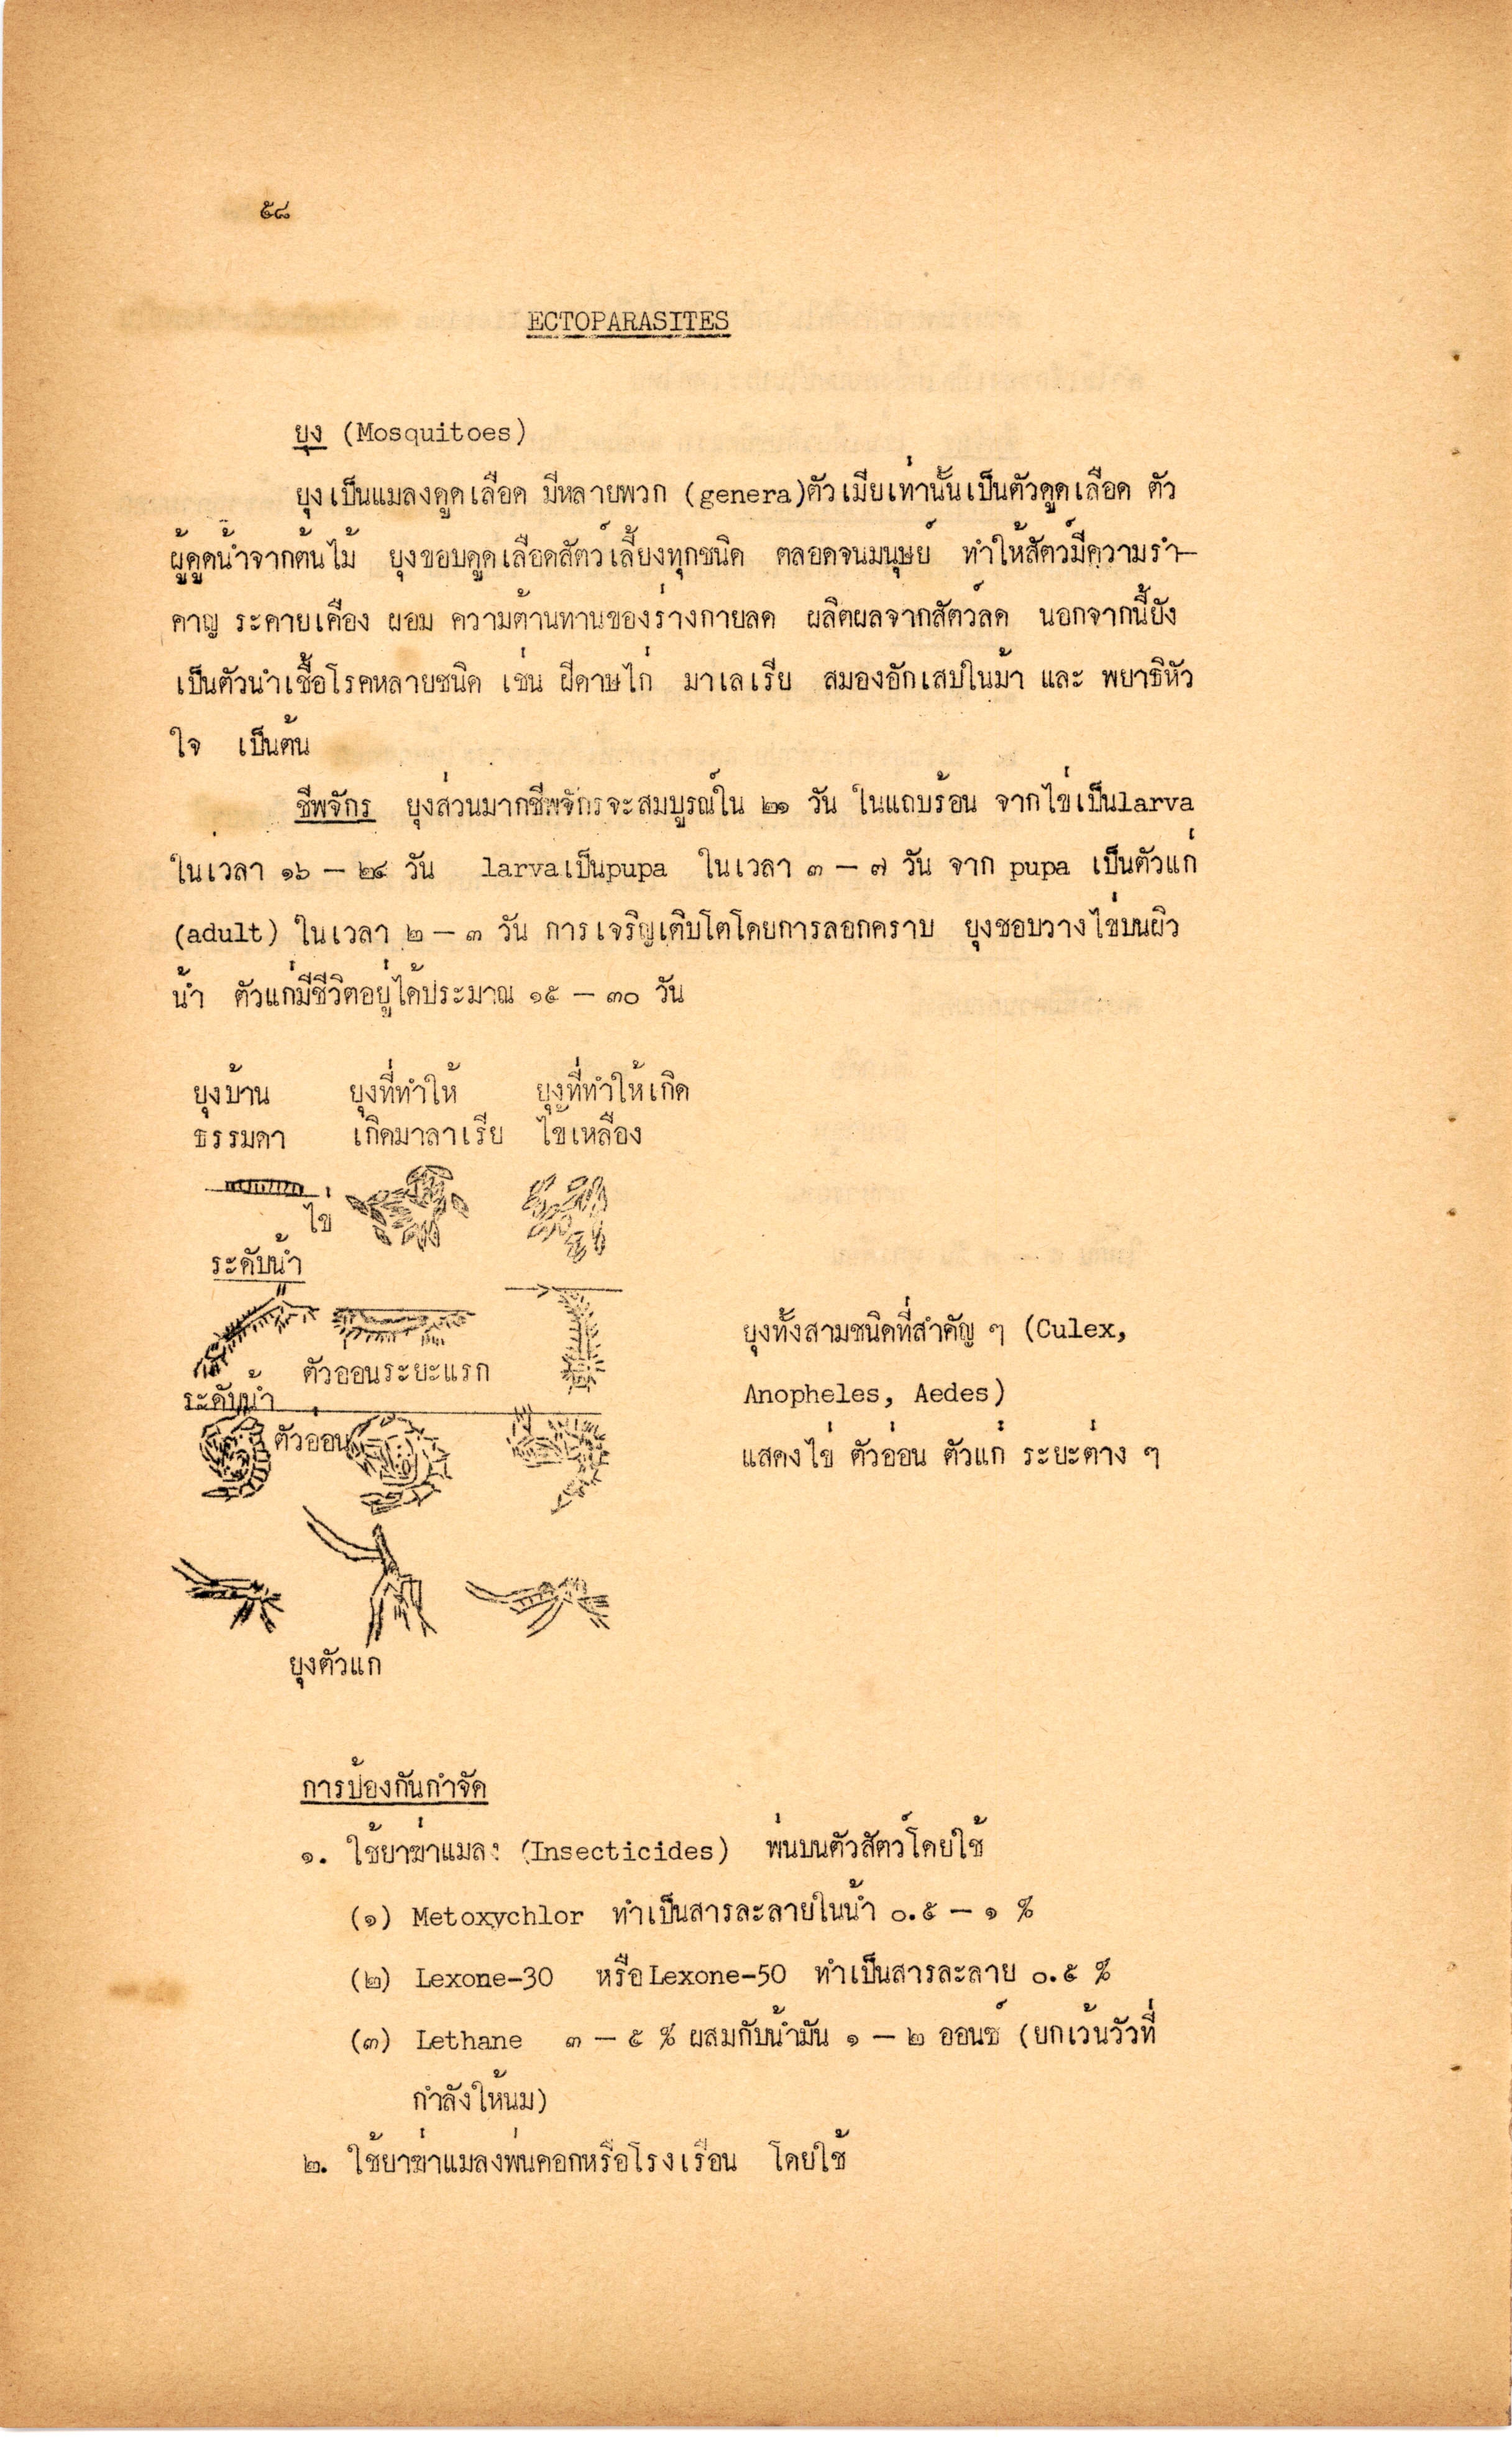 ๕๘
ECTOPARASITES
ยุง (Mosquitoes)
ยุงเป็นแมลงดูดเลือด มีหลายพวก (genera)ตัวเมียเท่านั้นเป็นตัวดูดเลือด ตัว
ผู้ดูดน้ำจากต้นไม้ ยุงชอบดูดเลือดสัตว์เลี้ยงทุกชนิด ตลอดจนมนุษย์ ทำให้สัตว์มีความรำ-
คาญ ระคายเคือง ผอม ความต้านทานของร่างกายลด ผลิตผลจากสัตว์ลด นอกจากนี้ยัง
เป็นตัวนำเชื้อโรคหลายชนิด เช่น ฝีดาษไก่ มาเลเรีย สมองอักเสบในม้า และ พยาธิหัว
ใจ เป็นต้น
ชีพจักร ยุงส่วนมากชีพจักรจะสมบูรณ์ใน ๒๑ วัน ในแถบร้อน จากไข่เป็นlarva
ในเวลา ๑๖ - ๒๔ วัน larvaเป็นpupa ในเวลา ๓ - ๗ วัน จาก pupa เป็นตัวแก่
(adult) ในเวลา ๒ - ๓ วัน การเจริญเติบโตโดยการลอกคราบ ยุงชอบวางไข่บนผิว
น้ำ ตัวแก่มีชีวิตอยู่ได้ประมาณ ๑๕ - ๓๐ วัน
ยุงบ้าน ยุงที่ทำให้ ยุงที่ทำให้เกิด
ธรรมดา เกิดมาลาเรีย ไข้เหลือง
ไข่
ระดับน้ำ
ตัวออนระยะแรก
ระดับน้ำ
ตัวออน
ยุงตัวแก
ยุงทั้งสามชนิดที่สำคัญ ๆ (Culex,
Anopheles, Aedes)
แสดงไข่ ตัวอ่อน ตัวแก่ ระยะต่าง ๆ
การป้องกันกำจัด
๑. ใช้ยาฆ่าแมลง (Insecticides) พ่นบนตัวสัตว์โดยใช้
(๑) Metoxychlor ทำเป็นสารละลายในน้ำ ๐.๕ - ๑ %
(๒) Lexone-30 หรือLexone-50 ทำเป็นสารละลาย ๐.๕ %
(๓) Lethane ๓ - ๕ % ผสมกับน้ำมัน ๑ - ๒ ออนซ์ (ยกเว้นวัวที่
กำลังให้นม)
๒. ใช้ยาฆ่าแมลงพ่นคอกหรือโรงเรือน โดยใช้